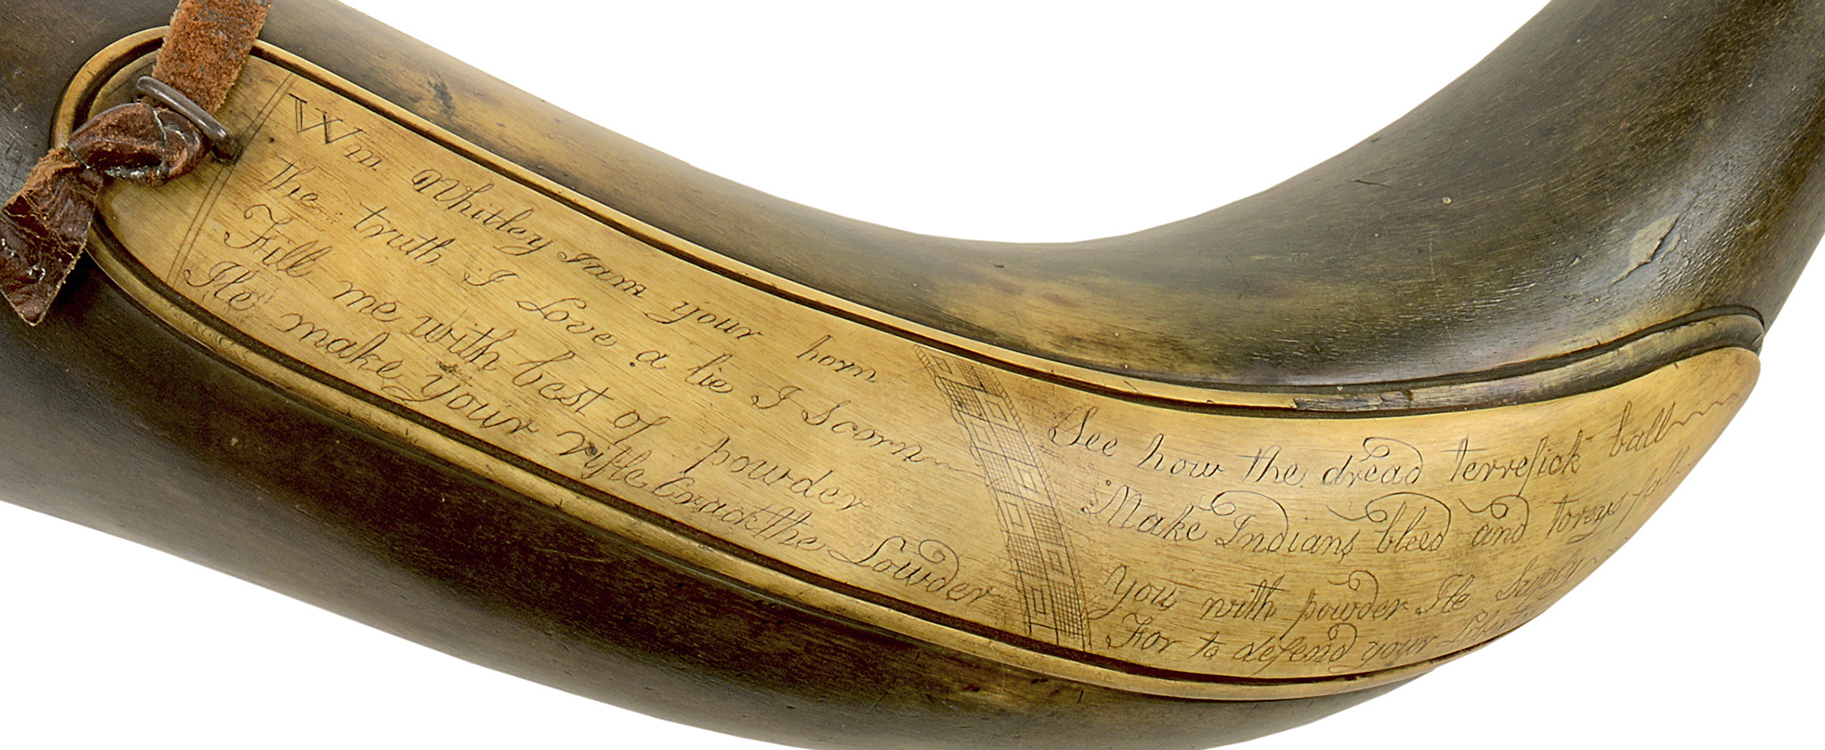 Wm Whitley I am your horn
The truth I Love a lie I Scorn
Fill me with best of powder
Ile make your rifle Crack the Lowder
See how the dread terrefick ball
Make Indians bleed and toreys fall
You with powder Ile Suply
For to defend your Liberty